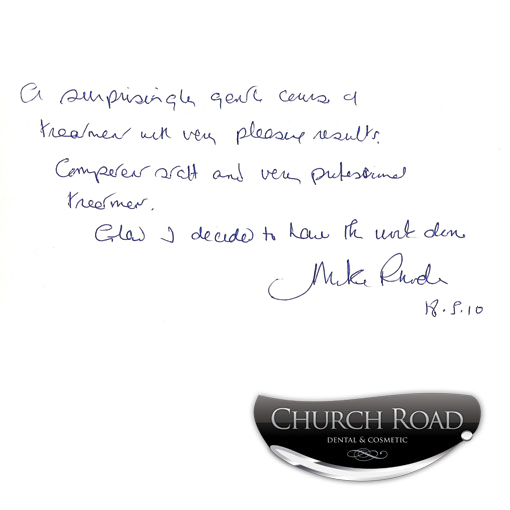 A surprisingly gentle course of
treatment with very pleasing results.
Competent staff and very professional
treatment.
Glad I decided to have the work done
Mike
18.5.10
CHURCH ROAD
DENTAL & COSMETIC